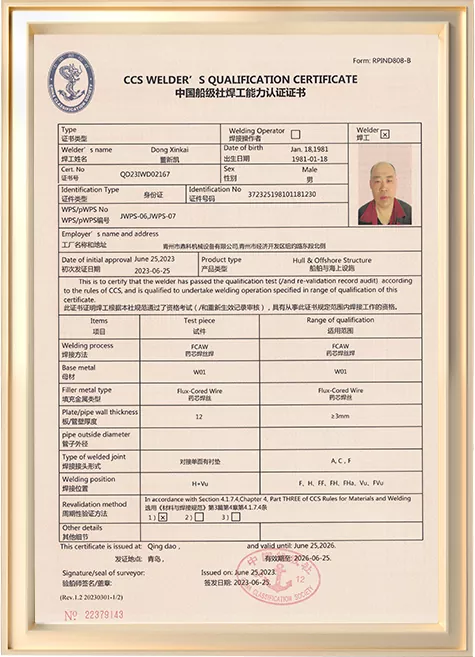 Form: RPIND808-B
CCS WELDER'S QUALIFICATION CERTIFICATE
中国船级社焊工能力认证证书
Type
证书类型
Welding Operator
焊接操作者
Welder
焊工
Welder's name
焊工姓名
Dong Xinkai
董新凯
Date of birth
出生日期
Jan. 18,1981
1981-01-18
Cert. No
证书号
QO23IWD02167
Sex
性别
Male
男
Identification Type
证件类型
身份证
Identification No
证件号码
372325198101181230
WPS/pWPS No
WPS/pWPS编号
JWPS-06,JWPS-07
Employer's name and address
工厂名称和地址
青州市鑫科机械设备有限公司,青州市经济开发区纽约路东段北侧
Date of initial approval
初次发证日期
June 25,2023
2023-06-25
Product type
产品类型
Hull & Offshore Structure
船舶与海上设施
This is to certify that the welder has passed the qualification test (/and re-validation record audit) according
to the rules of CCS, and is qualified to undertake welding operation specified in range of qualification of this
certificate.
此证书证明焊工根据本社规范通过了资格考试（/和重新生效记录审核）,具有从事此证书规范范围内焊接工作的资格。
Items
项目
Test piece
试件
Range of qualification
适用范围
Welding process
焊接方法
FCAW
药芯焊丝焊
FCAW
药芯焊丝焊
Base metal
母材
W01
W01
Filler metal type
填充金属类型
Flux-Cored Wire
药芯焊丝
Flux-Cored Wire
药芯焊丝
Plate/pipe wall thickness
板/管壁厚度
12
≥3mm
pipe outside diameter
管子外径
Type of welded joint
焊接接头形式
对接单面有衬垫
A, C , F
Welding position
焊接位置
H+Vu
F, H, FF, FH, FHa, Vu, FVu
Revalidation method
周期性验证方法
In accordance with Section 4.1.7.4,Chapter 4, Part THREE of CCS Rules for Materials and Welding
选用《材料与焊接规范》第3篇第4章第4.1.7.4条
1) 2) 3)
Other details
其他细节
This certificate is issued at: Qing dao ,
and valid until: June 25,2026.
发证地点: 青岛 ,
有效期至: 2026-06-25.
Signature/seal of surveyor:
Issued on: June 25,2023.
验船师签名/盖章:
签发日期: 2023-06-25.
(Rev.1.2 20230301-1/2)
12
№ 22379143